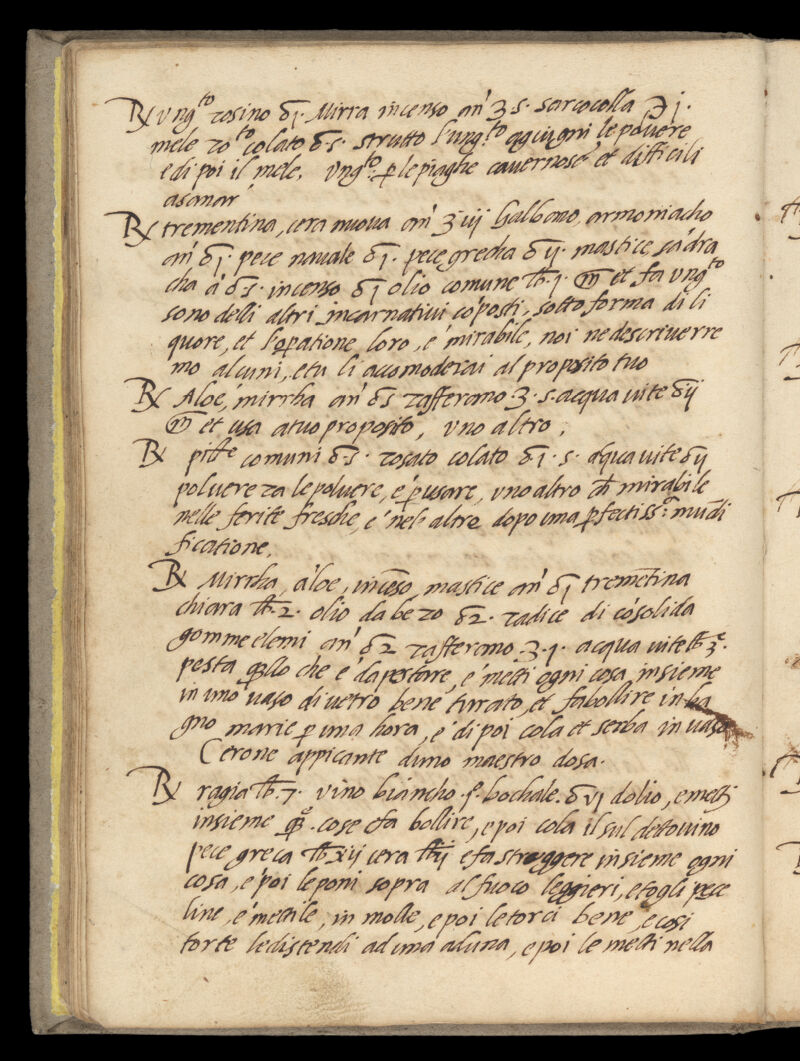 ℞ vng.to rosino ℥j. Mirra incenso an' ʒ.s. sarcocolla ℈j.
mele ro.to colato ℥.s. strutto l'ung.to aggiugni le poluere
e di poi il mele. vng.to p le piaghe cauernose et difficili
asanar'
℞ trementina, cera nuoua an' ʒ iij Galbano, armoniacho
an' ℥j. pece nauale ℥j. pece grecha ℥ij. mastice, sādra
cha ā ℥s. incenso ℥j olio comune ℔.j. m et fa vng.to
sono delli altri incarnatiui cōposti, sotto forma di li
quore, et l'opatione loro, e' mirabile, noi ne descriuerre
mo alcuni, e tu li accomoderai al proposito tuo
℞ Aloe, mirrha an' ℥s zafferano ʒ.s. acqua uite ℥ij
m et usa a tuo proposito, uno altro,
℞ comuni ℥.s. rosato colato ℥.j.s. aqua uite ℥ij
poluereza le poluere, e' pusare, uno altro ch mirabile
nelle ferite fresche, e' nele altre dopo una pfectiss.a mūdi
ficatione.
℞ Mirrha, aloe, incēso, mastice an' ℥j tremētina
chiara ℔.2. olio da bezo ℥2. radice di cōsolida
gomme elemi an' ℥2 zafferano ʒ.j. acqua uite
pesta qllo che e' da pestare, e' metti ogni cosa insieme
in uno uaso di uetro bene turato, et fa bollire in ba
gno marie p una hora, e' di poi cola et serba in uaso
Cerone appicante duno maestro dosa.
℞ ragia ℔.7. vino biancho bochale ℥vj dolio, e metti
insieme q.e cose e fa bollire, e poi cola il sul detto uino
pece greca ℔.xij cera ℔ij e fa struggere insieme ogni
cosa, e' poi le poni sopra al fuoco leggieri, e togli peze
line, e' mettile, in molle, e poi le torci bene, e cosi
torte le distendi ad una ad una, e poi le metti nella